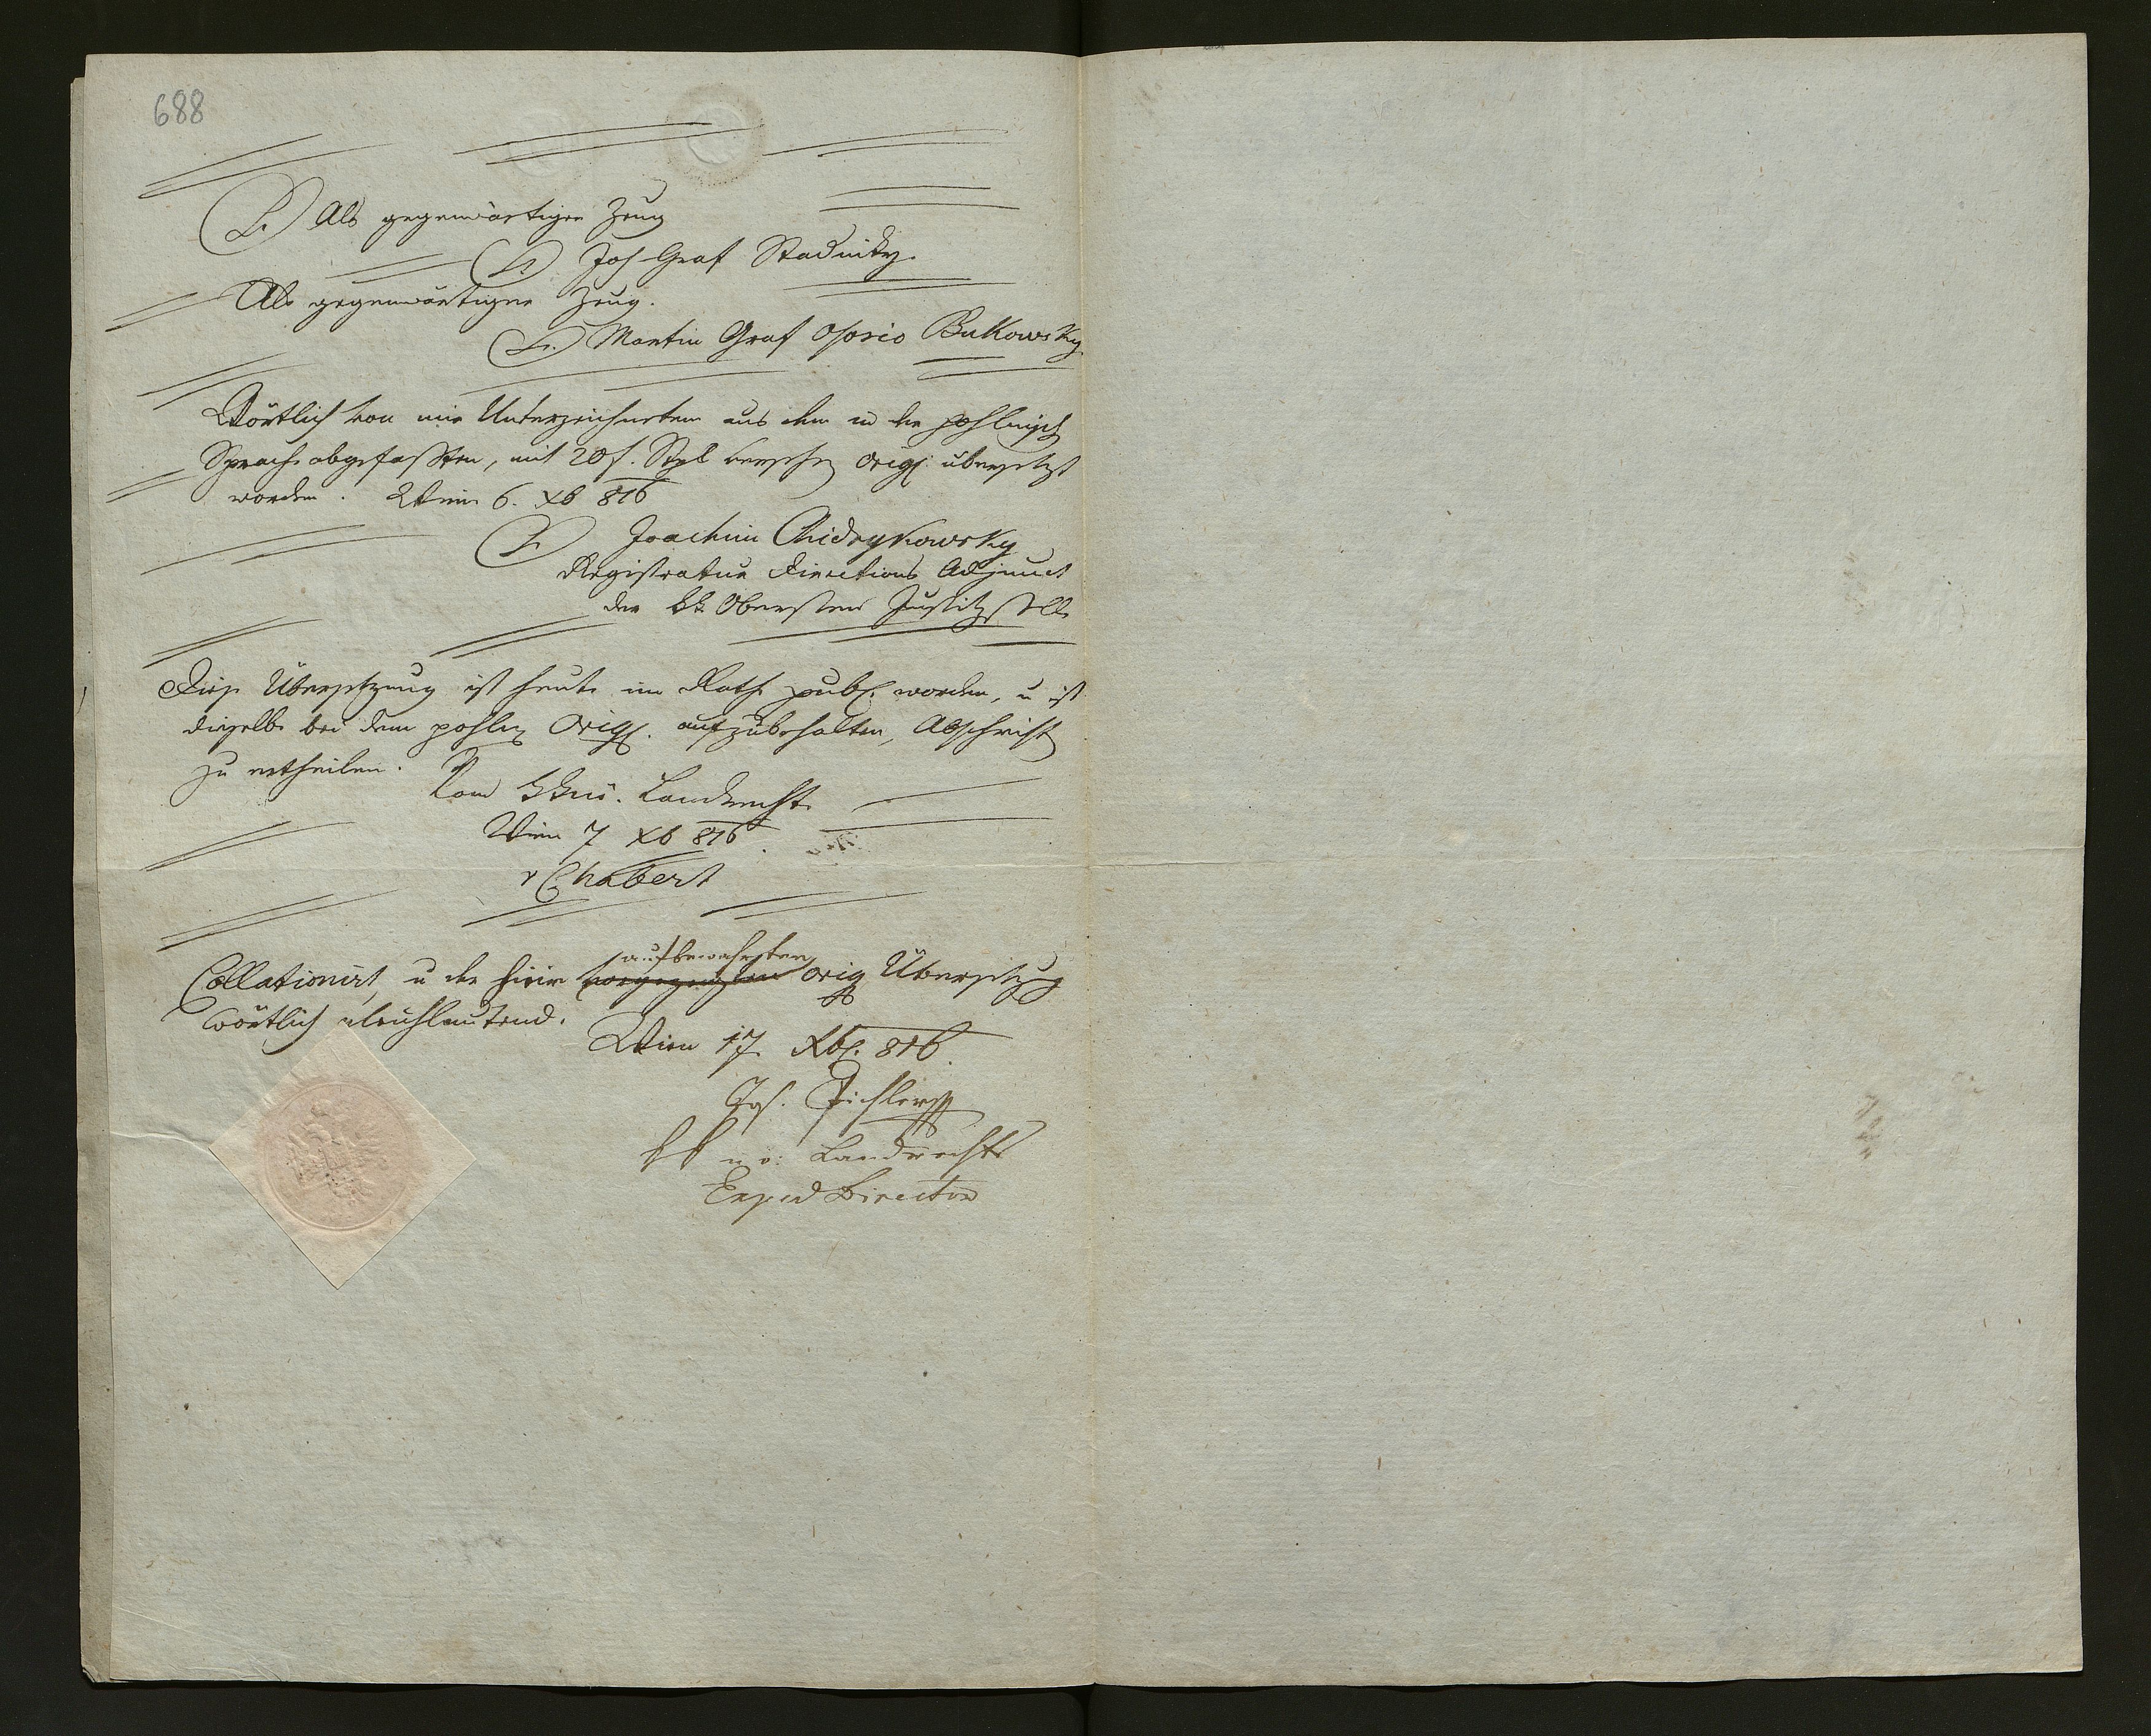 688
L. Als gegenwärtiger Zeug
L. Joh Graf Stadnitzky.
Als gegenwärtiger Zeug.
L. Martin Graf Osorio Bukowsky
Wörtlich von mir Unterzeichneten aus dem in der pohlnisch
Sprache abgefaßten, mit 20 f. Stpl versehen orig. übersetzt
worden. Wien 6. xb 816
L. Joachim
Registratur Directions Adjunct
der kk Obersten Justitzstelle
Diese Übersetzung ist heute im Rathe publ. worden, u ist
dieselbe bei dem pohln Orig. aufzubehalten, Abschrift
zu ertheilen.
Vom kk nö. Landrechte
Wien 7 xb 816
v Chabert
aufbewahrten
Collationirt, u der hier vorgezeigten orig Übersetzg
wörtlich gleichlautend.
Wien 17. Xb. 816.
Jos. Pichler
kk nö: Landrechts
Exped Director